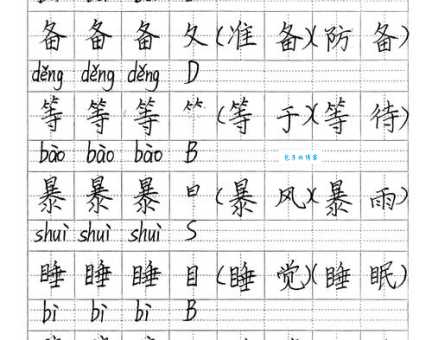 备 备 备 夂 (准 备)(防 备)
děng děng děng D
等 等 等 ⺮ (等 于)(等 待)
bào bào bào B
暴 暴 暴 日 (暴 风)(暴 雨)
shuì shuì shuì S
睡 睡 睡 目 (睡 觉)(睡 眠)
bì bì bì B